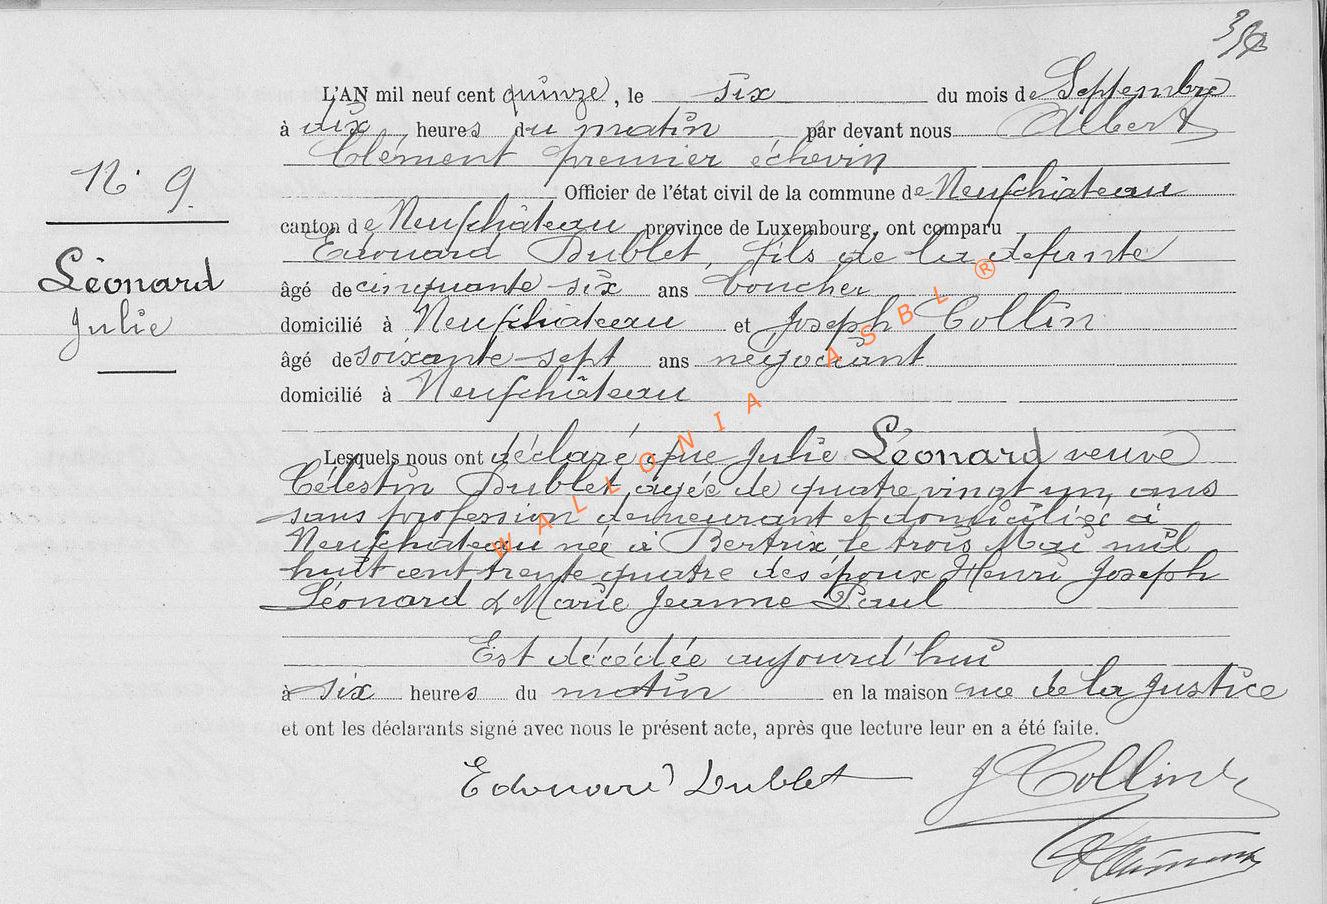 L'AN mil neuf cent quinze, le six du mois de Septembre
à dix heures du matin par devant nous Albert
Clément premier échevin
N° 9.
Officier de l'état civil de la commune de Neufchâteau
canton de Neufchâteau province de Luxembourg, ont comparu
Edouard Dublet, fils de la defunte
Léonard
Julie
âgé de cinquante six ans boucher
domicilié à Neufchâteau et Joseph Collin
âgé de soixante-sept ans negociant
domicilié à Neufchâteau
Lesquels nous ont déclaré que Julie Léonard veuve
Célestin Dublet, agée de quatre vingt un ans
sans profession demeurant et domiciliée à
Neufchâteau née à Bertrix le trois Mai mil
huit cent trente quatre des époux Henri Joseph
Léonard & Marie Jeanne Paul
Est décédée aujourd'hui
à six heures du matin en la maison rue de la Justice
et ont les déclarants signé avec nous le présent acte, après que lecture leur en a été faite.
Edouard Dublet
J Collin
A Clément
WALLONIA ASBL ®